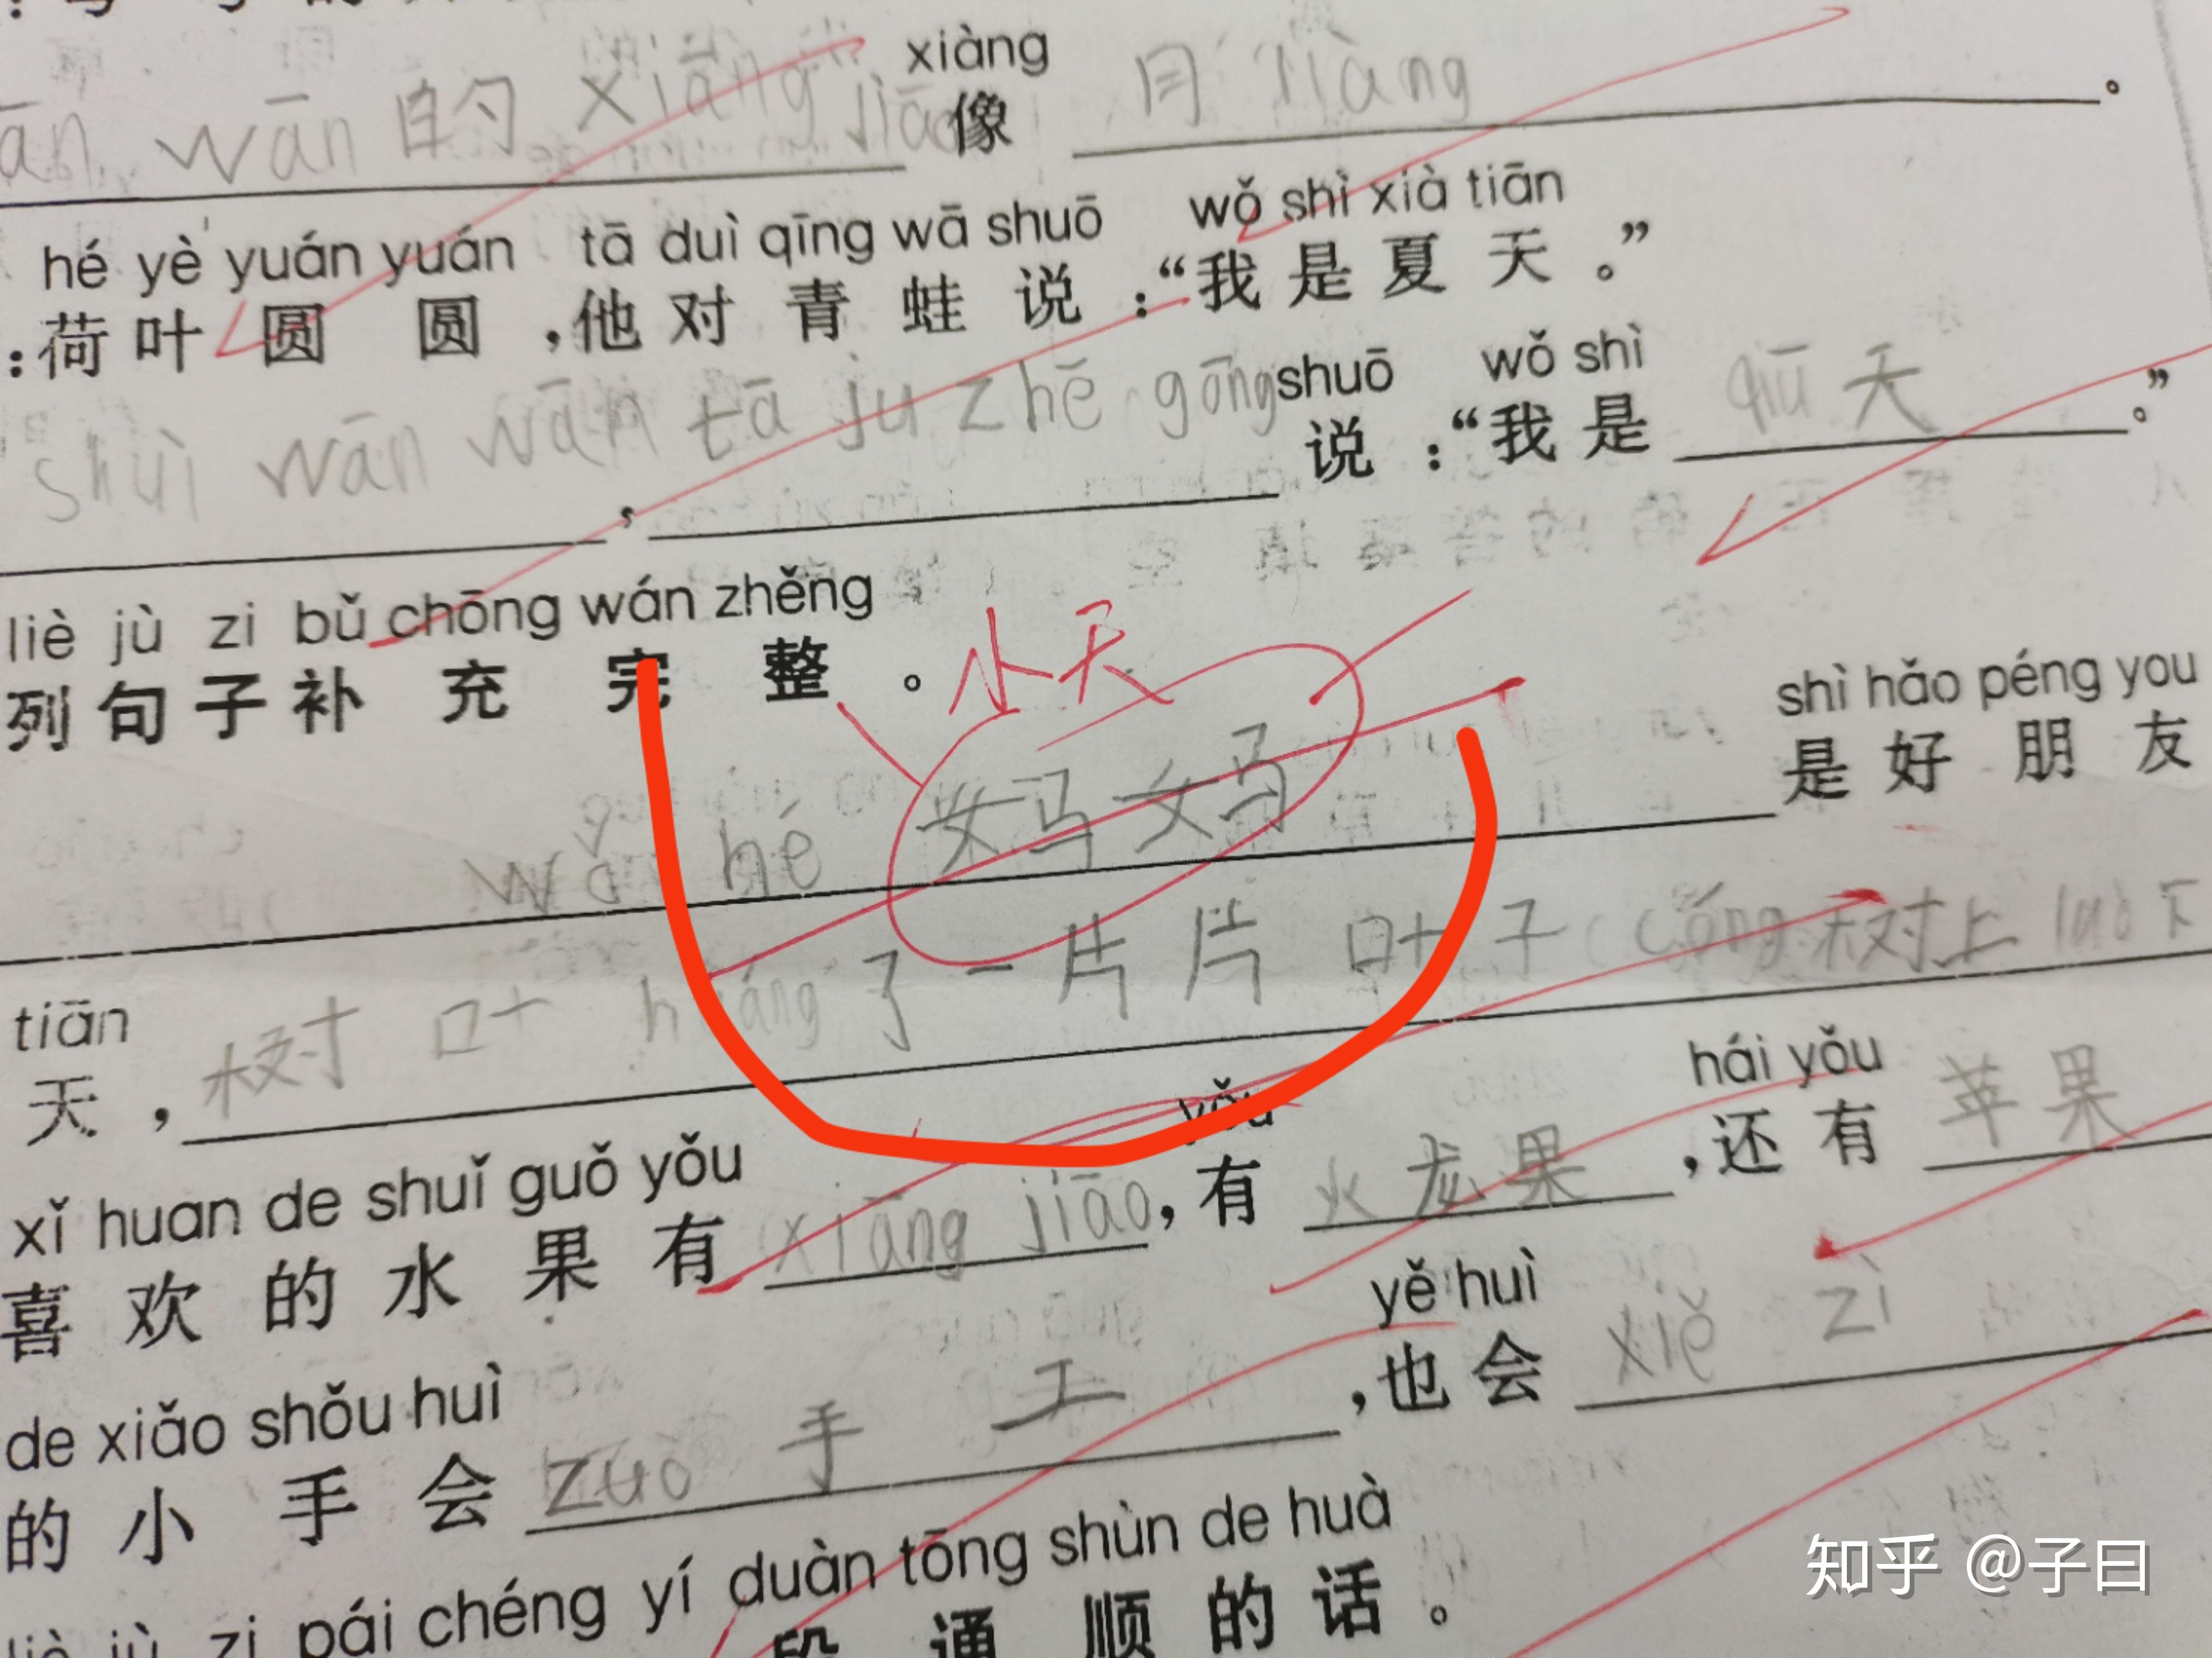 xiàng
ān wān 的 xiāng jiāo 像 月 liàng 。
hé yè yuán yuán tā duì qīng wā shuō wǒ shì xià tiān
：荷叶圆圆，他对青蛙说：“我是夏天。”
shuō wǒ shì
shuì wān wān tā ju zhē gōng 说：“我是 qiū 天 。”
，
liè jù zi bǔ chōng wán zhěng
列句子补充完整。
小天
shì hǎo péng you
wǒ hé 妈妈 是好朋友
tiān
天，树叶 huáng 了一片片叶子 cóng 树上 luò 下
xǐ huan de shuǐ guǒ yǒu yǒu hái yǒu
喜欢的水果有 xiāng jiāo ，有 火龙果 ，还有 苹果
de xiǎo shǒu huì yě huì
的小手会 zuò 手工 ，也会 xiě zì
liè jù zi pái chéng yí duàn tōng shùn de huà
段通顺的话。
知乎 @子曰